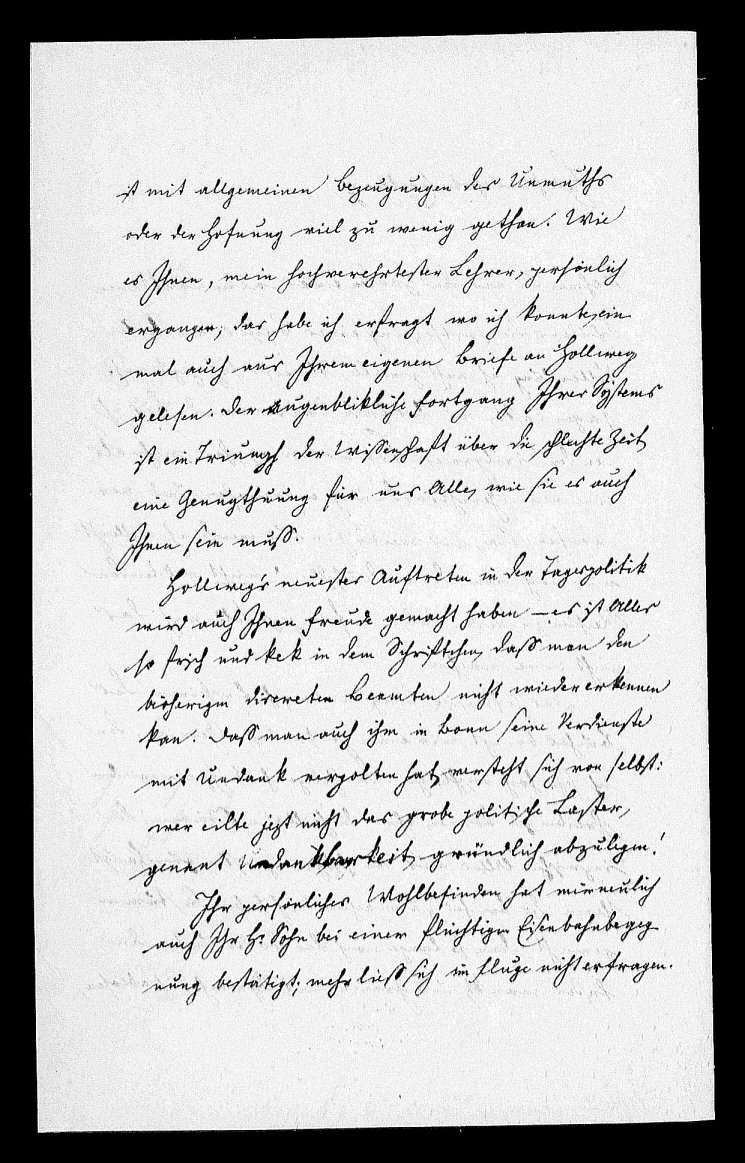 ist mit allgemeinen Bezeugungen des Unmuths
oder der Hofnung viel zu wenig gethan. Wie
es Ihnen, mein hochverehrtester Lehrer, persönlich
ergangen, das habe ich erfragt wo ich konnte, ein
mal auch aus Ihrem eigenen Briefe an Hollweg
gelesen. Der augenblikliche Fortgang Ihres Systems
ist ein Triumph der Wissenschaft über die schlechte Zeit,
eine Genugthuung für uns Alle, wie sie es auch
Ihnen sein muss.
Hollweg's neuestes Auftreten in der Tagespolitik
wird auch Ihnen Freude gemacht haben – es ist Alles
so frisch und kek in dem Schriftchen, dass man den
bisherigen discreten Beamten nicht wieder erkennen
kan. Dass man auch ihm in Bonn seine Verdienste
mit Undank vergolten hat, versteht sich von selbst:
wer eilte jezt nicht das grobe politische Laster,
genant Undankbarkeit, gründlich abzulegen!
Ihr persönliches Wohlbefinden hat mir neulich
auch Ihr H. Sohn bei einer flüchtigen Eisenbahnbegeg
nung bestätigt; mehr liess sich im Fluge nicht erfragen.